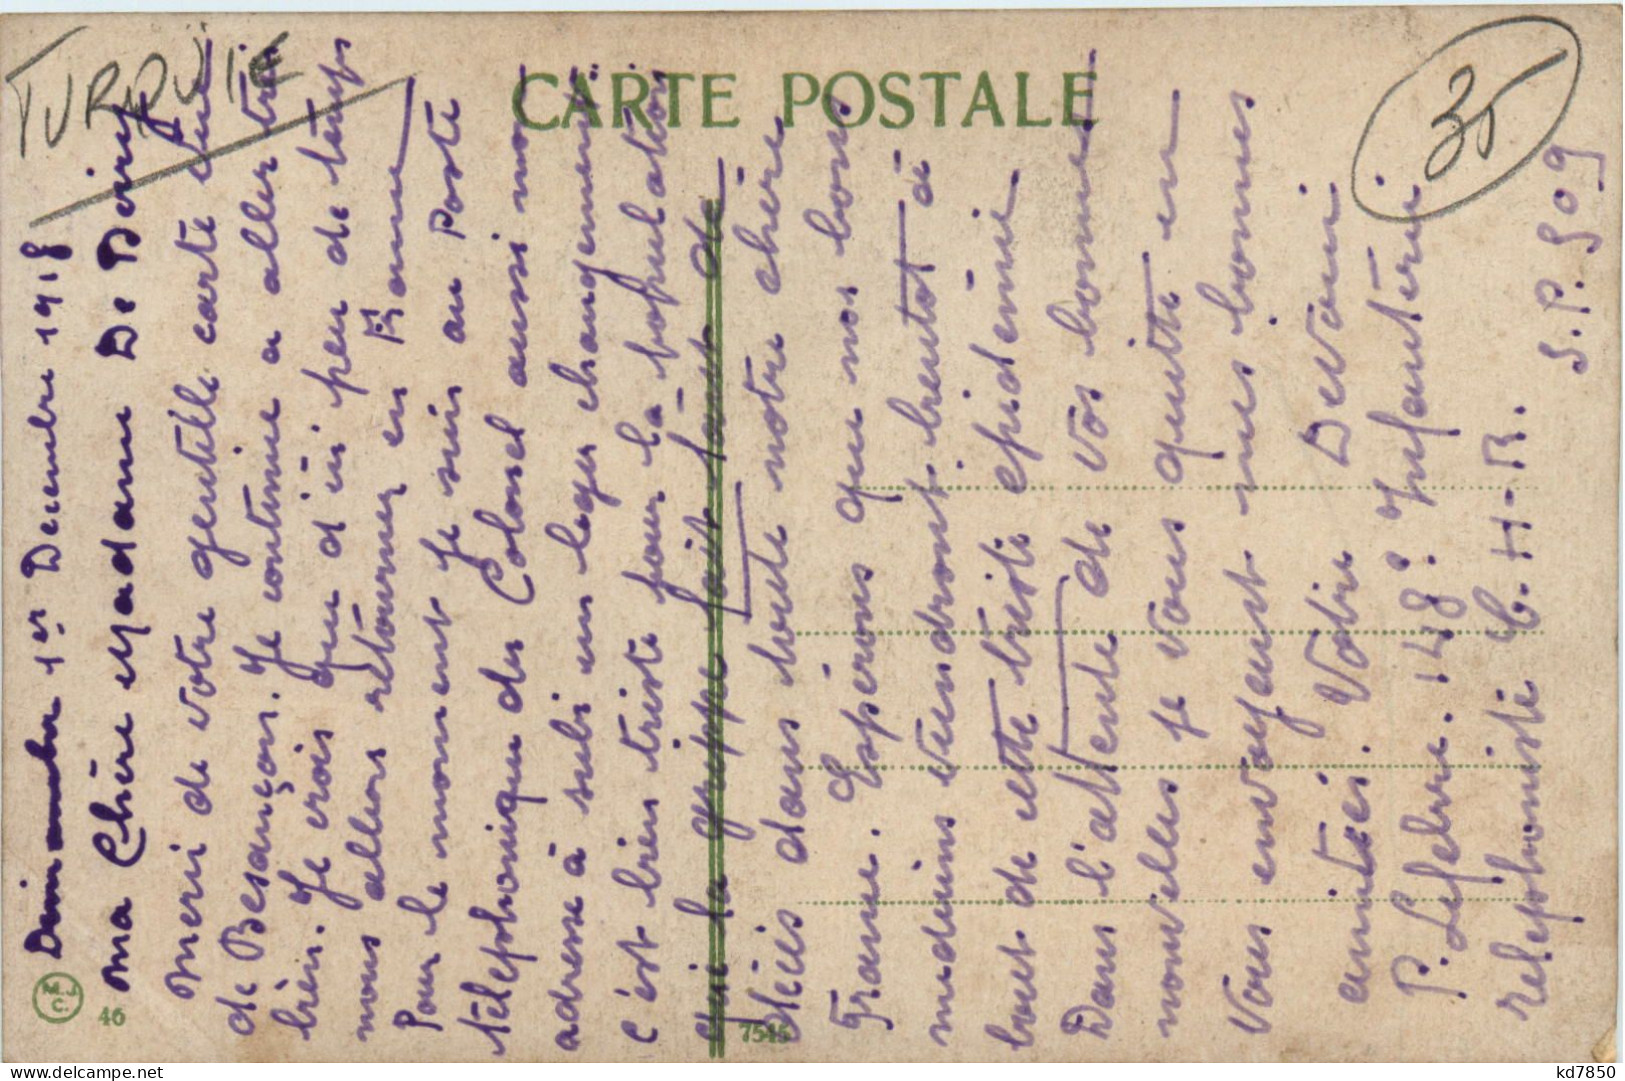 TURQUIE
35
CARTE POSTALE
Dimanche 1er Decembre 1918
Ma Chère Madame De
Merci de votre gentille carte vue
de Besançon. Je continue a aller très
bien. Je crois que d'ici peu de temps
nous allons retourner en France
Pour le moment je suis au Poste
téléphonique du Colonel aussi mon
adresse à subi un leger changement
c'est bien triste pour la population
que la grippe fait tant de
décès dans toute notre chère
France. Espérons que nos bons
medecins viendront bientot à
bout de cette triste epidemie
Dans l'attente de vos bonnes
nouvelles je vous quitte en
vous envoyant mes bonnes
amitiés. Votre Devoué
P. Lefebvre. 148e Infanterie
telephoniste C.H-R.
S.P. 509
M.J.C.
46
7545
kd7850